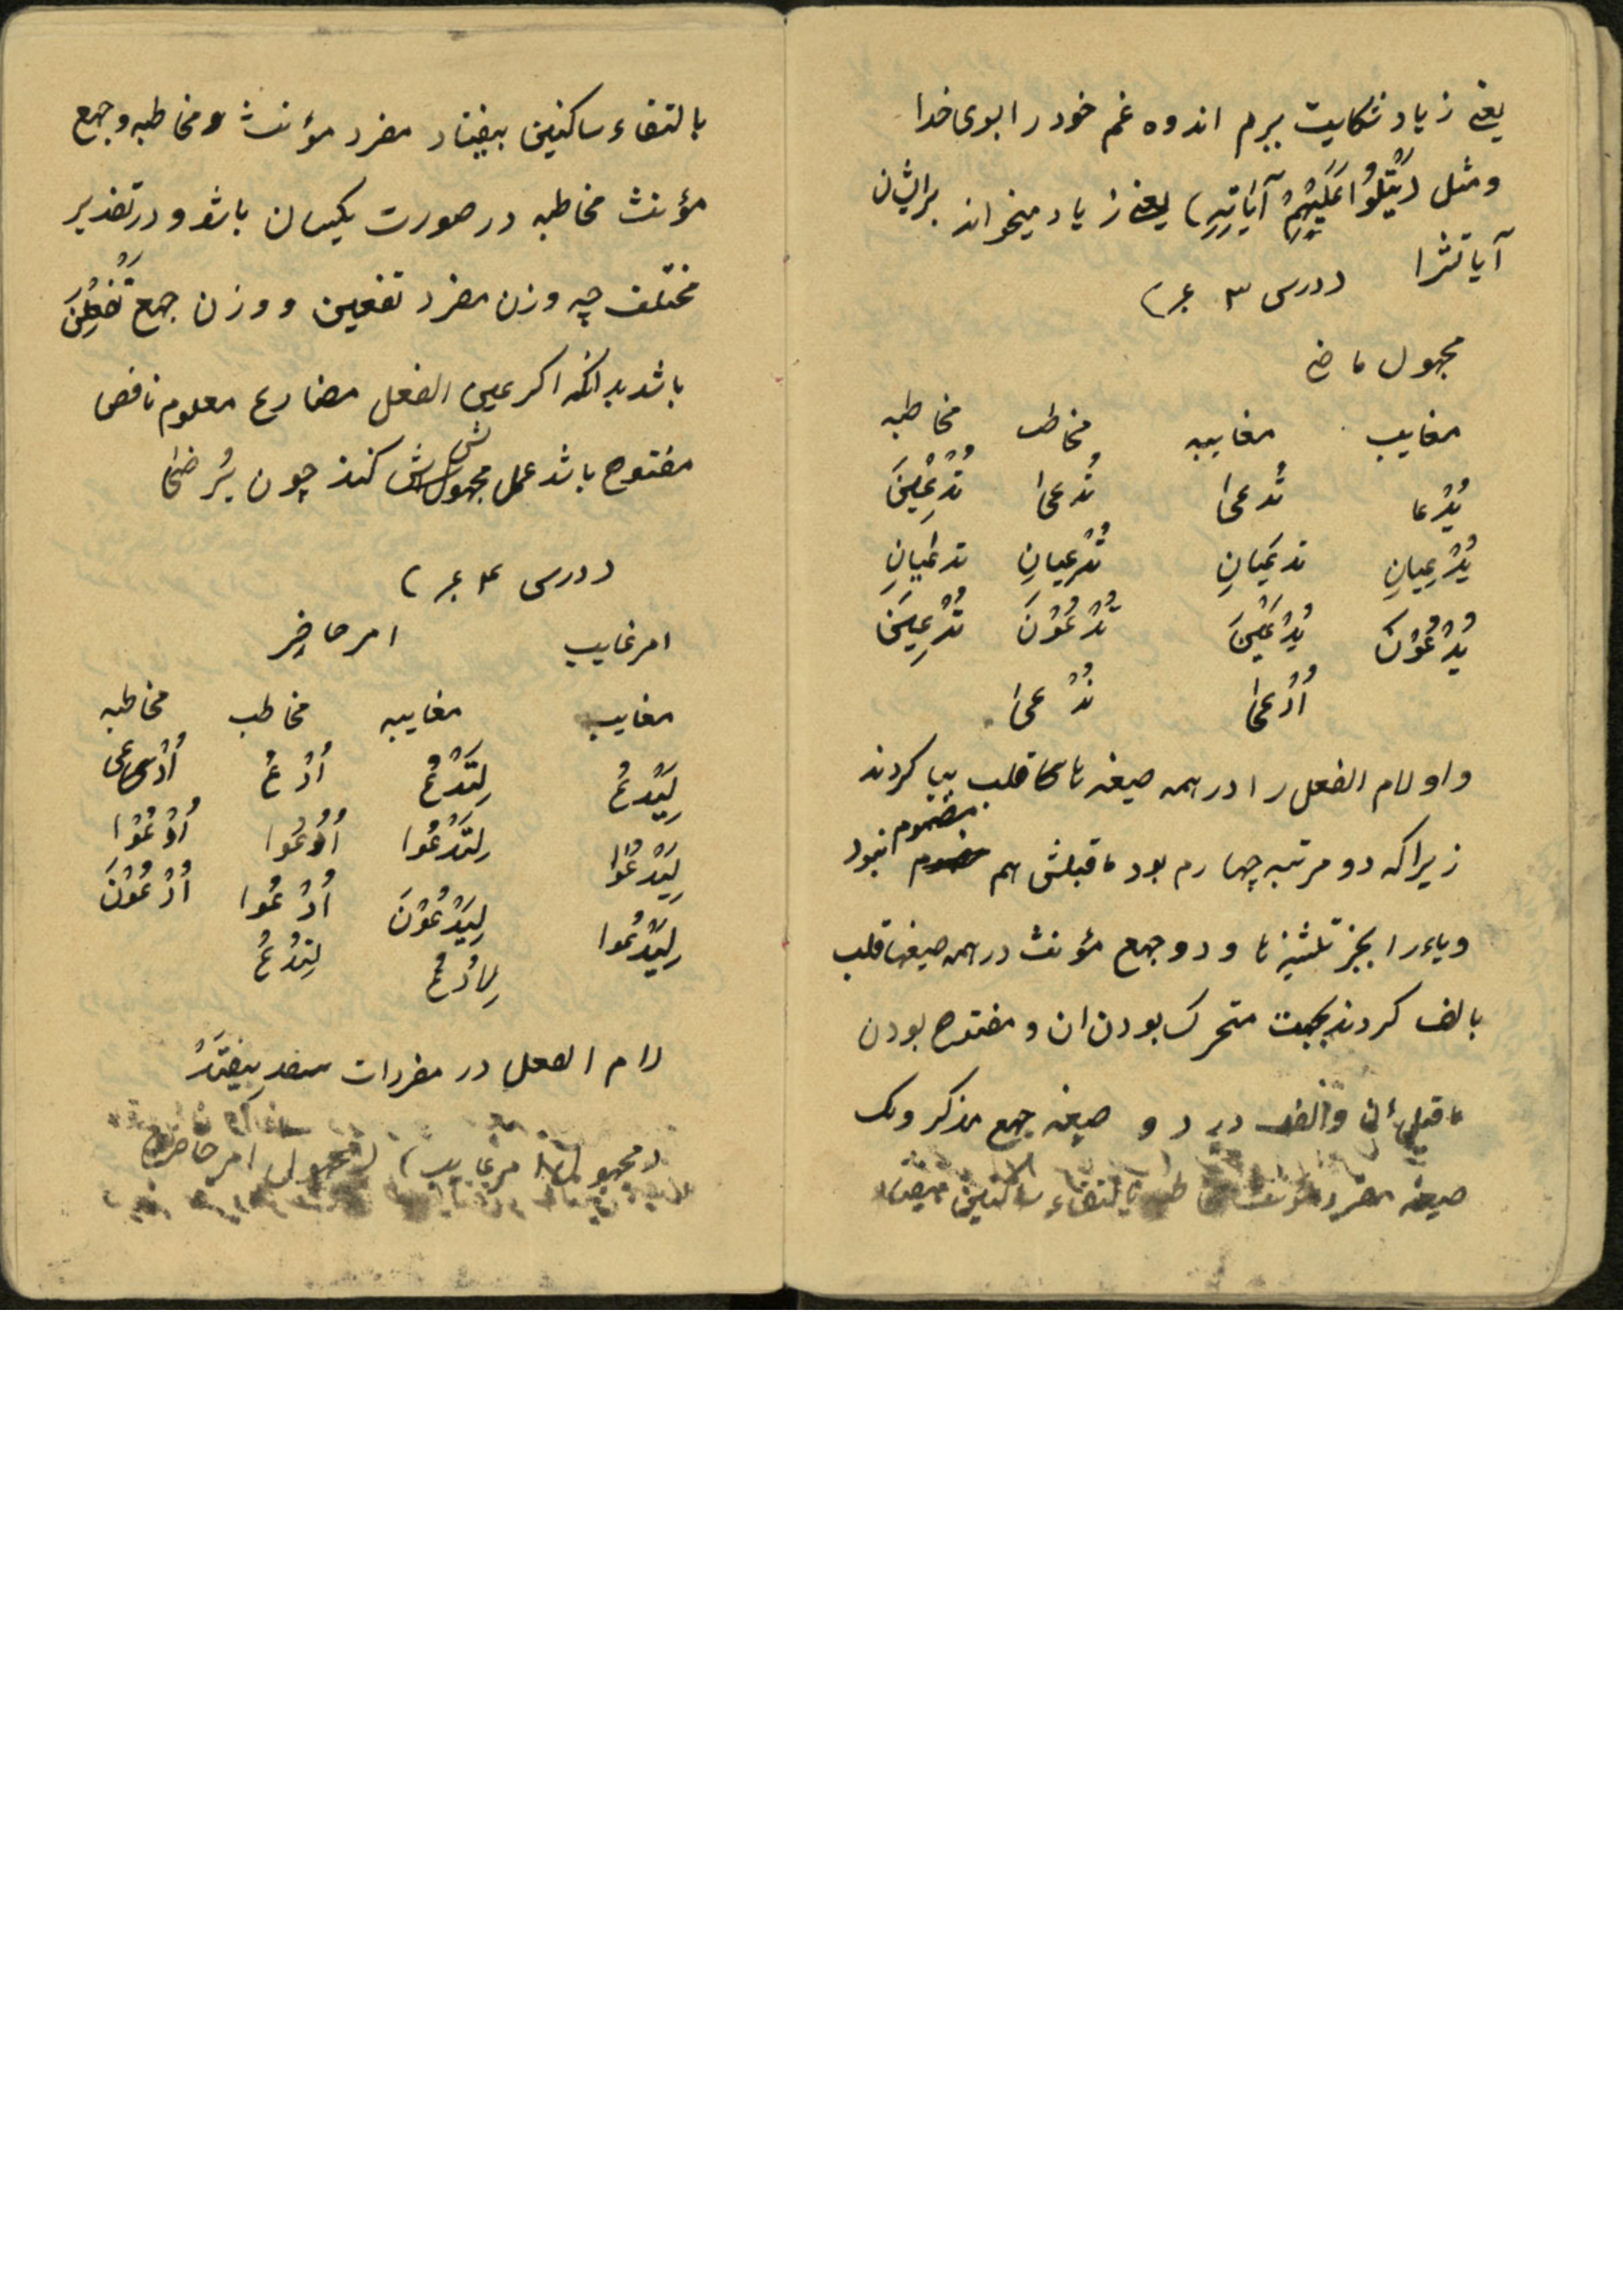 یعنے زیاد شکایت ببرم اندوه غم خود را بوی خدا
ومثل (یَتْلُوُا عَلَیْهِمْ آیَاتِهِ) یعنے زیاد میخواند برایشان
آیاتشرا (درس ۳ ع)
مجهول ماضے
مغایب مغایبه مخاطب مخاطبه
یُدْعا تُدعیٰ تُدعیٰ تُدْعَیْنَ
یُدْعیانِ تدعَیانِ تُدْعیانِ تدعَیانِ
یُدْعَوْنَ یُدْعَیْنَ تُدْعَوْنَ تُدْعَیْنَ
اُدْعیٰ نُدْعیٰ
واو لام الفعل را در همه صیغه ها قلب بیا کردند
زیرا که دو مرتبه چهارم بود ماقبلش هم مضموم نبود
ویاء را بجز تثنیه ها و دو جمع مؤنث در همه صیغها قلب
بالف کردند بجهت متحرک بودن ان و مفتوح بودن
ماقبل ان والف در دو صیغه جمع مذکر ویک
صیغه مفرد بالتقاء ساکنین بیفتاد
بالتقاء ساکنین بیفتاد مفرد مؤنث و مخاطبه وجمع
مؤنث مخاطبه در صورت یکسان باشد و در تقدیر
مختلف چه وزن مفرد تفعین و وزن جمع تُفْعَلْنَ
باشد بدانکه اکر عین الفعل مضارع معلوم ناقص
مفتوح باشد عمل مجهولش کنند چون یُرْضیٰ
(درس ۴ ع)
امر غایب امر حاضِر
مغایب مغایبه مخاطب مخاطبه
لِیَدْعُ لِتَدْعُ اُدْعُ اُدْعی
لِیَدْعُوا لِتَدْعُوا اُدْعُوا اُدْعُوْا
لِیَدْعُوا لِیَدْعُوْنَ اُدْعُوا اُدْعُوْنَ
لِاَدْعُ لِنَدْعُ
لام الفعل در مفردات بیفتَدْ
(مجهول امر غایب) (مجهول امر حاضر)